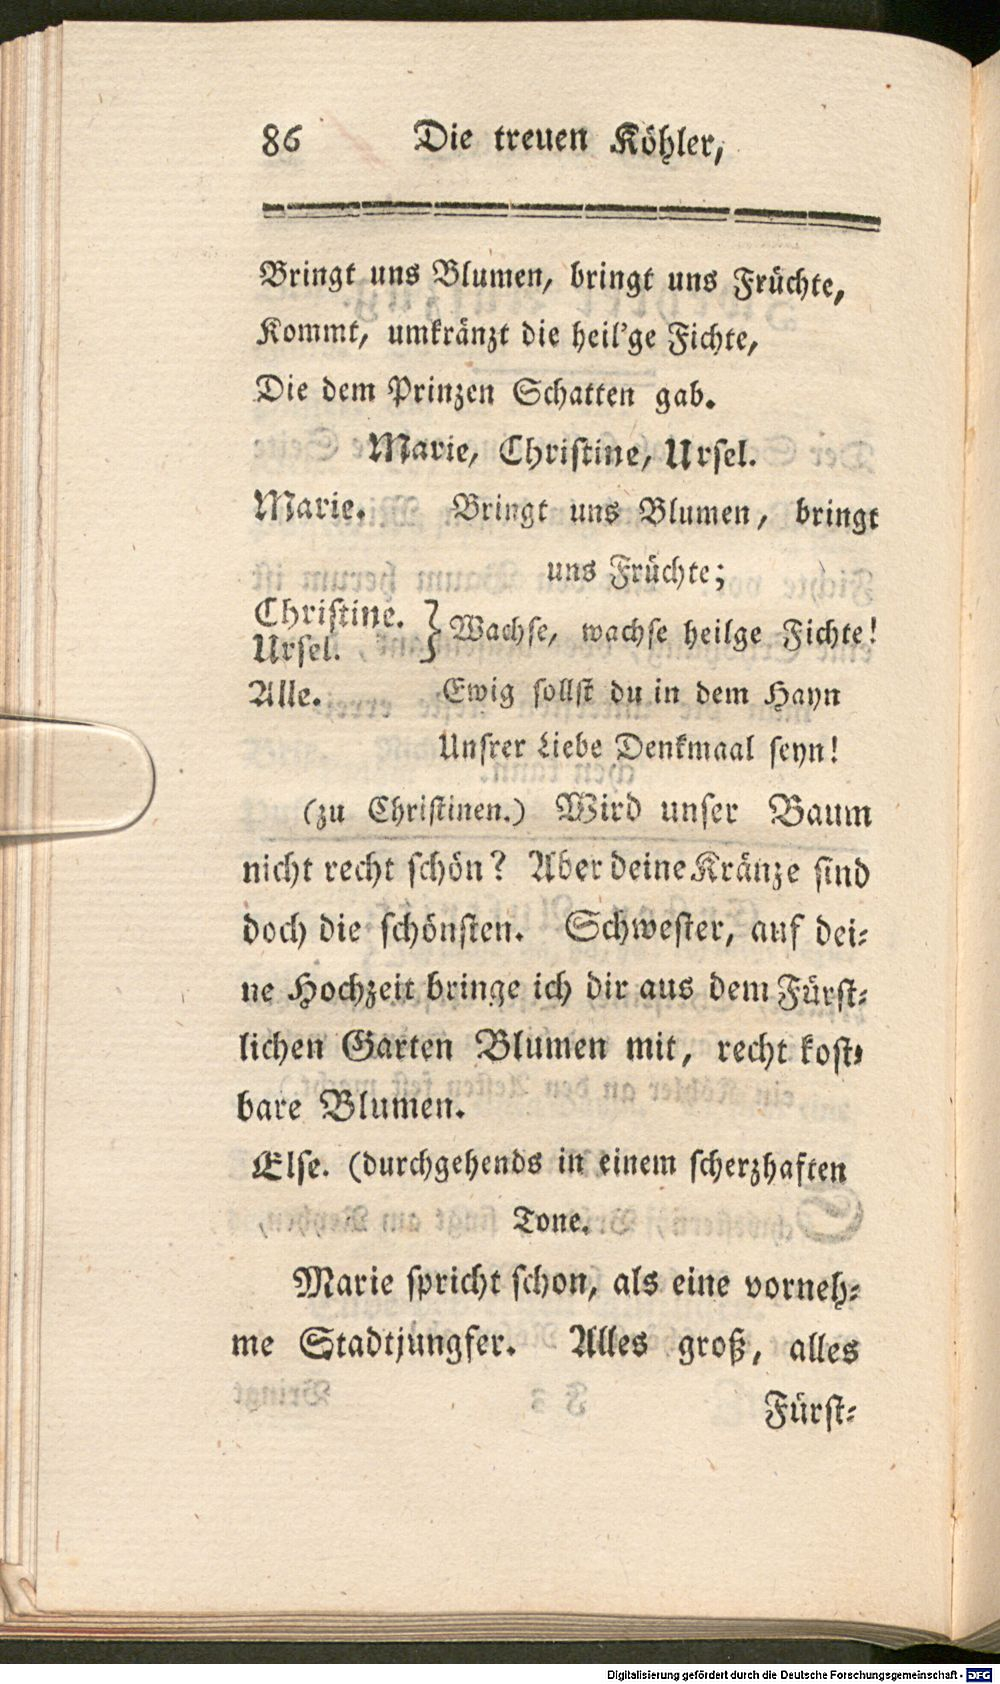 86 Die treuen Köhler,
Bringt uns Blumen, bringt uns Früchte,
Kommt, umkränzt die heil'ge Fichte,
Die dem Prinzen Schatten gab.
Marie, Christine, Ursel.
Marie. Bringt uns Blumen, bringt
uns Früchte;
Christine. }
Ursel. } Wachse, wachse heilge Fichte!
Alle. Ewig sollst du in dem Hayn
Unsrer Liebe Denkmaal seyn!
(zu Christinen.) Wird unser Baum
nicht recht schön? Aber deine Kränze sind
doch die schönsten. Schwester, auf dei-
ne Hochzeit bringe ich dir aus dem Fürst-
lichen Garten Blumen mit, recht kost-
bare Blumen.
Else. (durchgehends in einem scherzhaften
Tone.
Marie spricht schon, als eine vorneh-
me Stadtjungfer. Alles groß, alles
Fürst-
Digitalisierung gefördert durch die Deutsche Forschungsgemeinschaft - DFG